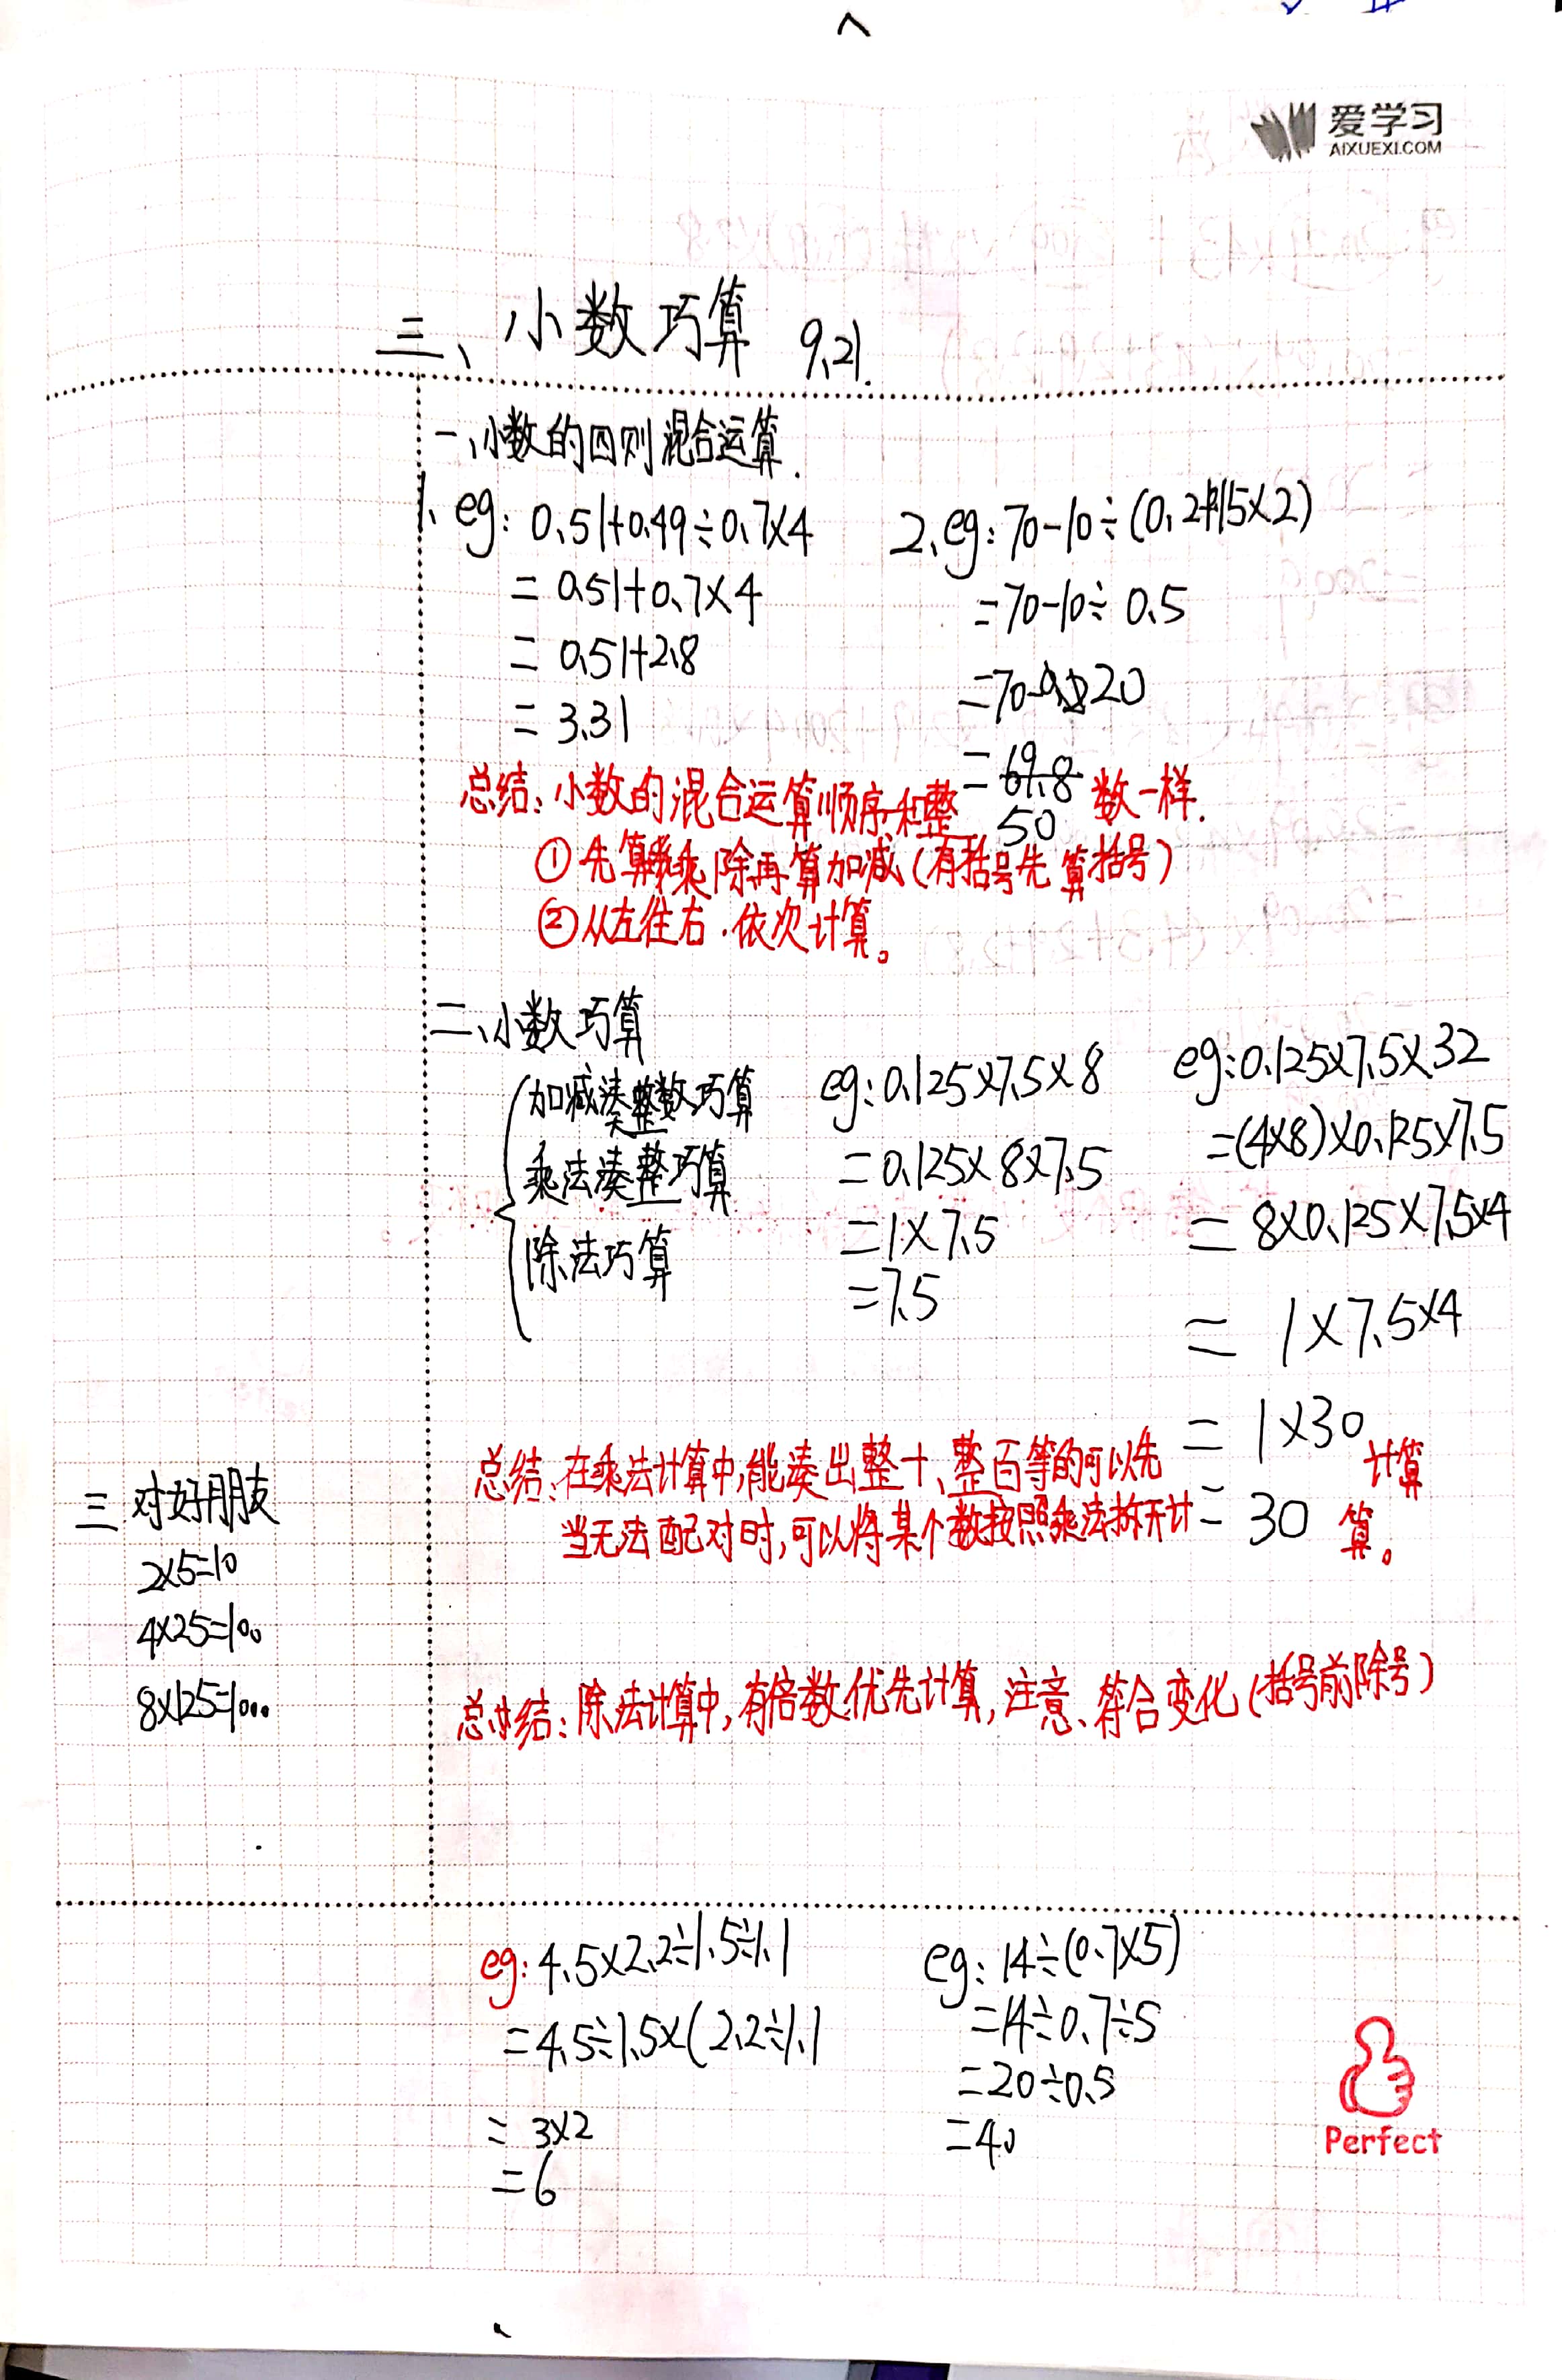 爱学习
AIXUEXI.COM
三、小数巧算 9.21.
一、小数的四则混合运算.
1、eg: 0.51+0.49÷0.7×4
=0.51+0.7×4
=0.51+2.8
=3.31
2、eg: 70-10÷(0.2+0.15×2)
=70-10÷0.5
=70-20
=69.8
50
总结:小数的混合运算顺序和整数一样.
①先算乘除再算加减(有括号先算括号)
②从左往右.依次计算。
二、小数巧算
加减凑整数巧算
乘法凑整巧算
除法巧算
eg:0.125×7.5×8
=0.125×8×7.5
=1×7.5
=7.5
eg:0.125×7.5×32
=(4×8)×0.125×7.5
=8×0.125×7.5×4
=1×7.5×4
=1×30
=30
三对好朋友
2×5=10
4×25=100
8×125=1000
总结:在乘法计算中,能凑出整十、整百等的可以先计算
当无法配对时,可以将某个数按照乘法拆开计算。
总结:除法计算中,有倍数优先计算,注意、符合变化(括号前除号)
eg:4.5×2.2÷1.5÷1.1
=4.5÷1.5×(2.2÷1.1
=3×2
=6
eg:14÷(0.7×5)
=14÷0.7÷5
=20÷0.5
=40
Perfect